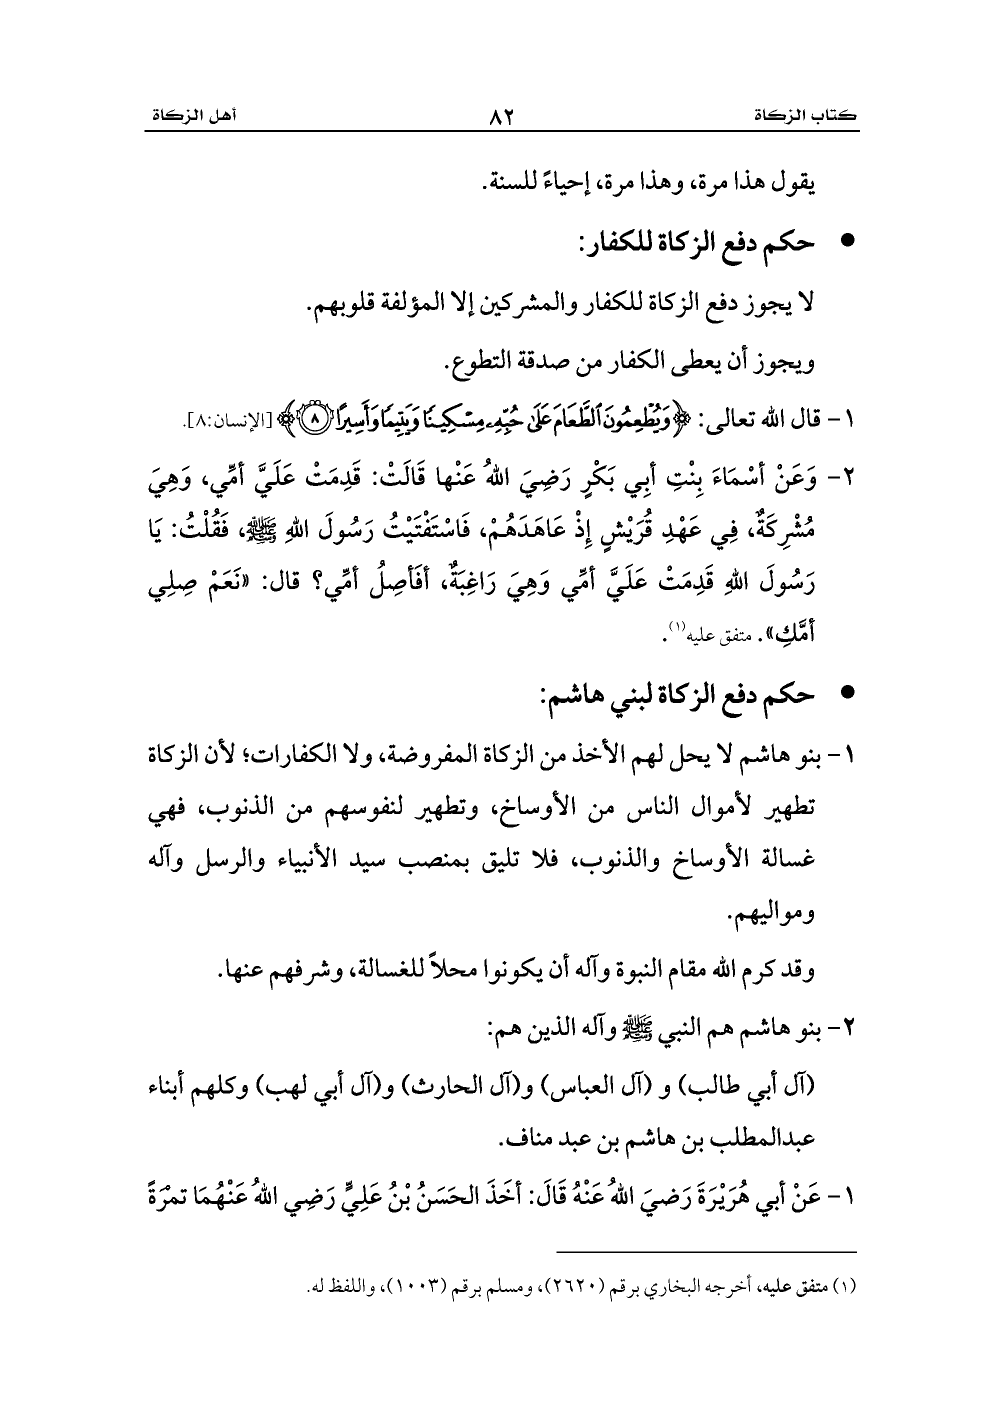 كتاب الزكاة ٨٢ أهل الزكاة
يقول هذا مرة، وهذا مرة، إحياءً للسنة.
● حكم دفع الزكاة للكفار:
لا يجوز دفع الزكاة للكفار والمشركين إلا المؤلفة قلوبهم.
ويجوز أن يعطى الكفار من صدقة التطوع.
١- قال الله تعالى: ﴿وَيُطْعِمُونَ ٱلطَّعَامَ عَلَىٰ حُبِّهِۦ مِسْكِينًا وَيَتِيمًا وَأَسِيرًا ٨﴾ [الإنسان:٨].
٢- وَعَنْ أسْمَاءَ بِنْتِ أبِي بَكْرٍ رَضِيَ اللهُ عَنْها قَالَتْ: قَدِمَتْ عَلَيَّ أمِّي، وَهِيَ
مُشْرِكَةٌ، فِي عَهْدِ قُرَيْشٍ إذْ عَاهَدَهُمْ، فَاسْتَفْتَيْتُ رَسُولَ اللهِ ﷺ، فَقُلْتُ: يَا
رَسُولَ اللهِ قَدِمَتْ عَلَيَّ أمِّي وَهِيَ رَاغِبَةٌ، أفَأصِلُ أمِّي؟ قال: «نَعَمْ صِلِي
أمَّكِ». متفق عليه(١).
● حكم دفع الزكاة لبني هاشم:
١- بنو هاشم لا يحل لهم الأخذ من الزكاة المفروضة، ولا الكفارات؛ لأن الزكاة
تطهير لأموال الناس من الأوساخ، وتطهير لنفوسهم من الذنوب، فهي
غسالة الأوساخ والذنوب، فلا تليق بمنصب سيد الأنبياء والرسل وآله
ومواليهم.
وقد كرم الله مقام النبوة وآله أن يكونوا محلاً للغسالة، وشرفهم عنها.
٢- بنو هاشم هم النبي ﷺ وآله الذين هم:
(آل أبي طالب) و (آل العباس) و(آل الحارث) و(آل أبي لهب) وكلهم أبناء
عبدالمطلب بن هاشم بن عبد مناف.
١- عَنْ أبي هُرَيْرَةَ رَضيَ اللهُ عَنْهُ قَالَ: أخَذَ الحَسَنُ بْنُ عَلِيٍّ رَضِي اللهُ عَنْهُمَا تمْرَةً
(١) متفق عليه، أخرجه البخاري برقم (٢٦٢٠)، ومسلم برقم (١٠٠٣)، واللفظ له.